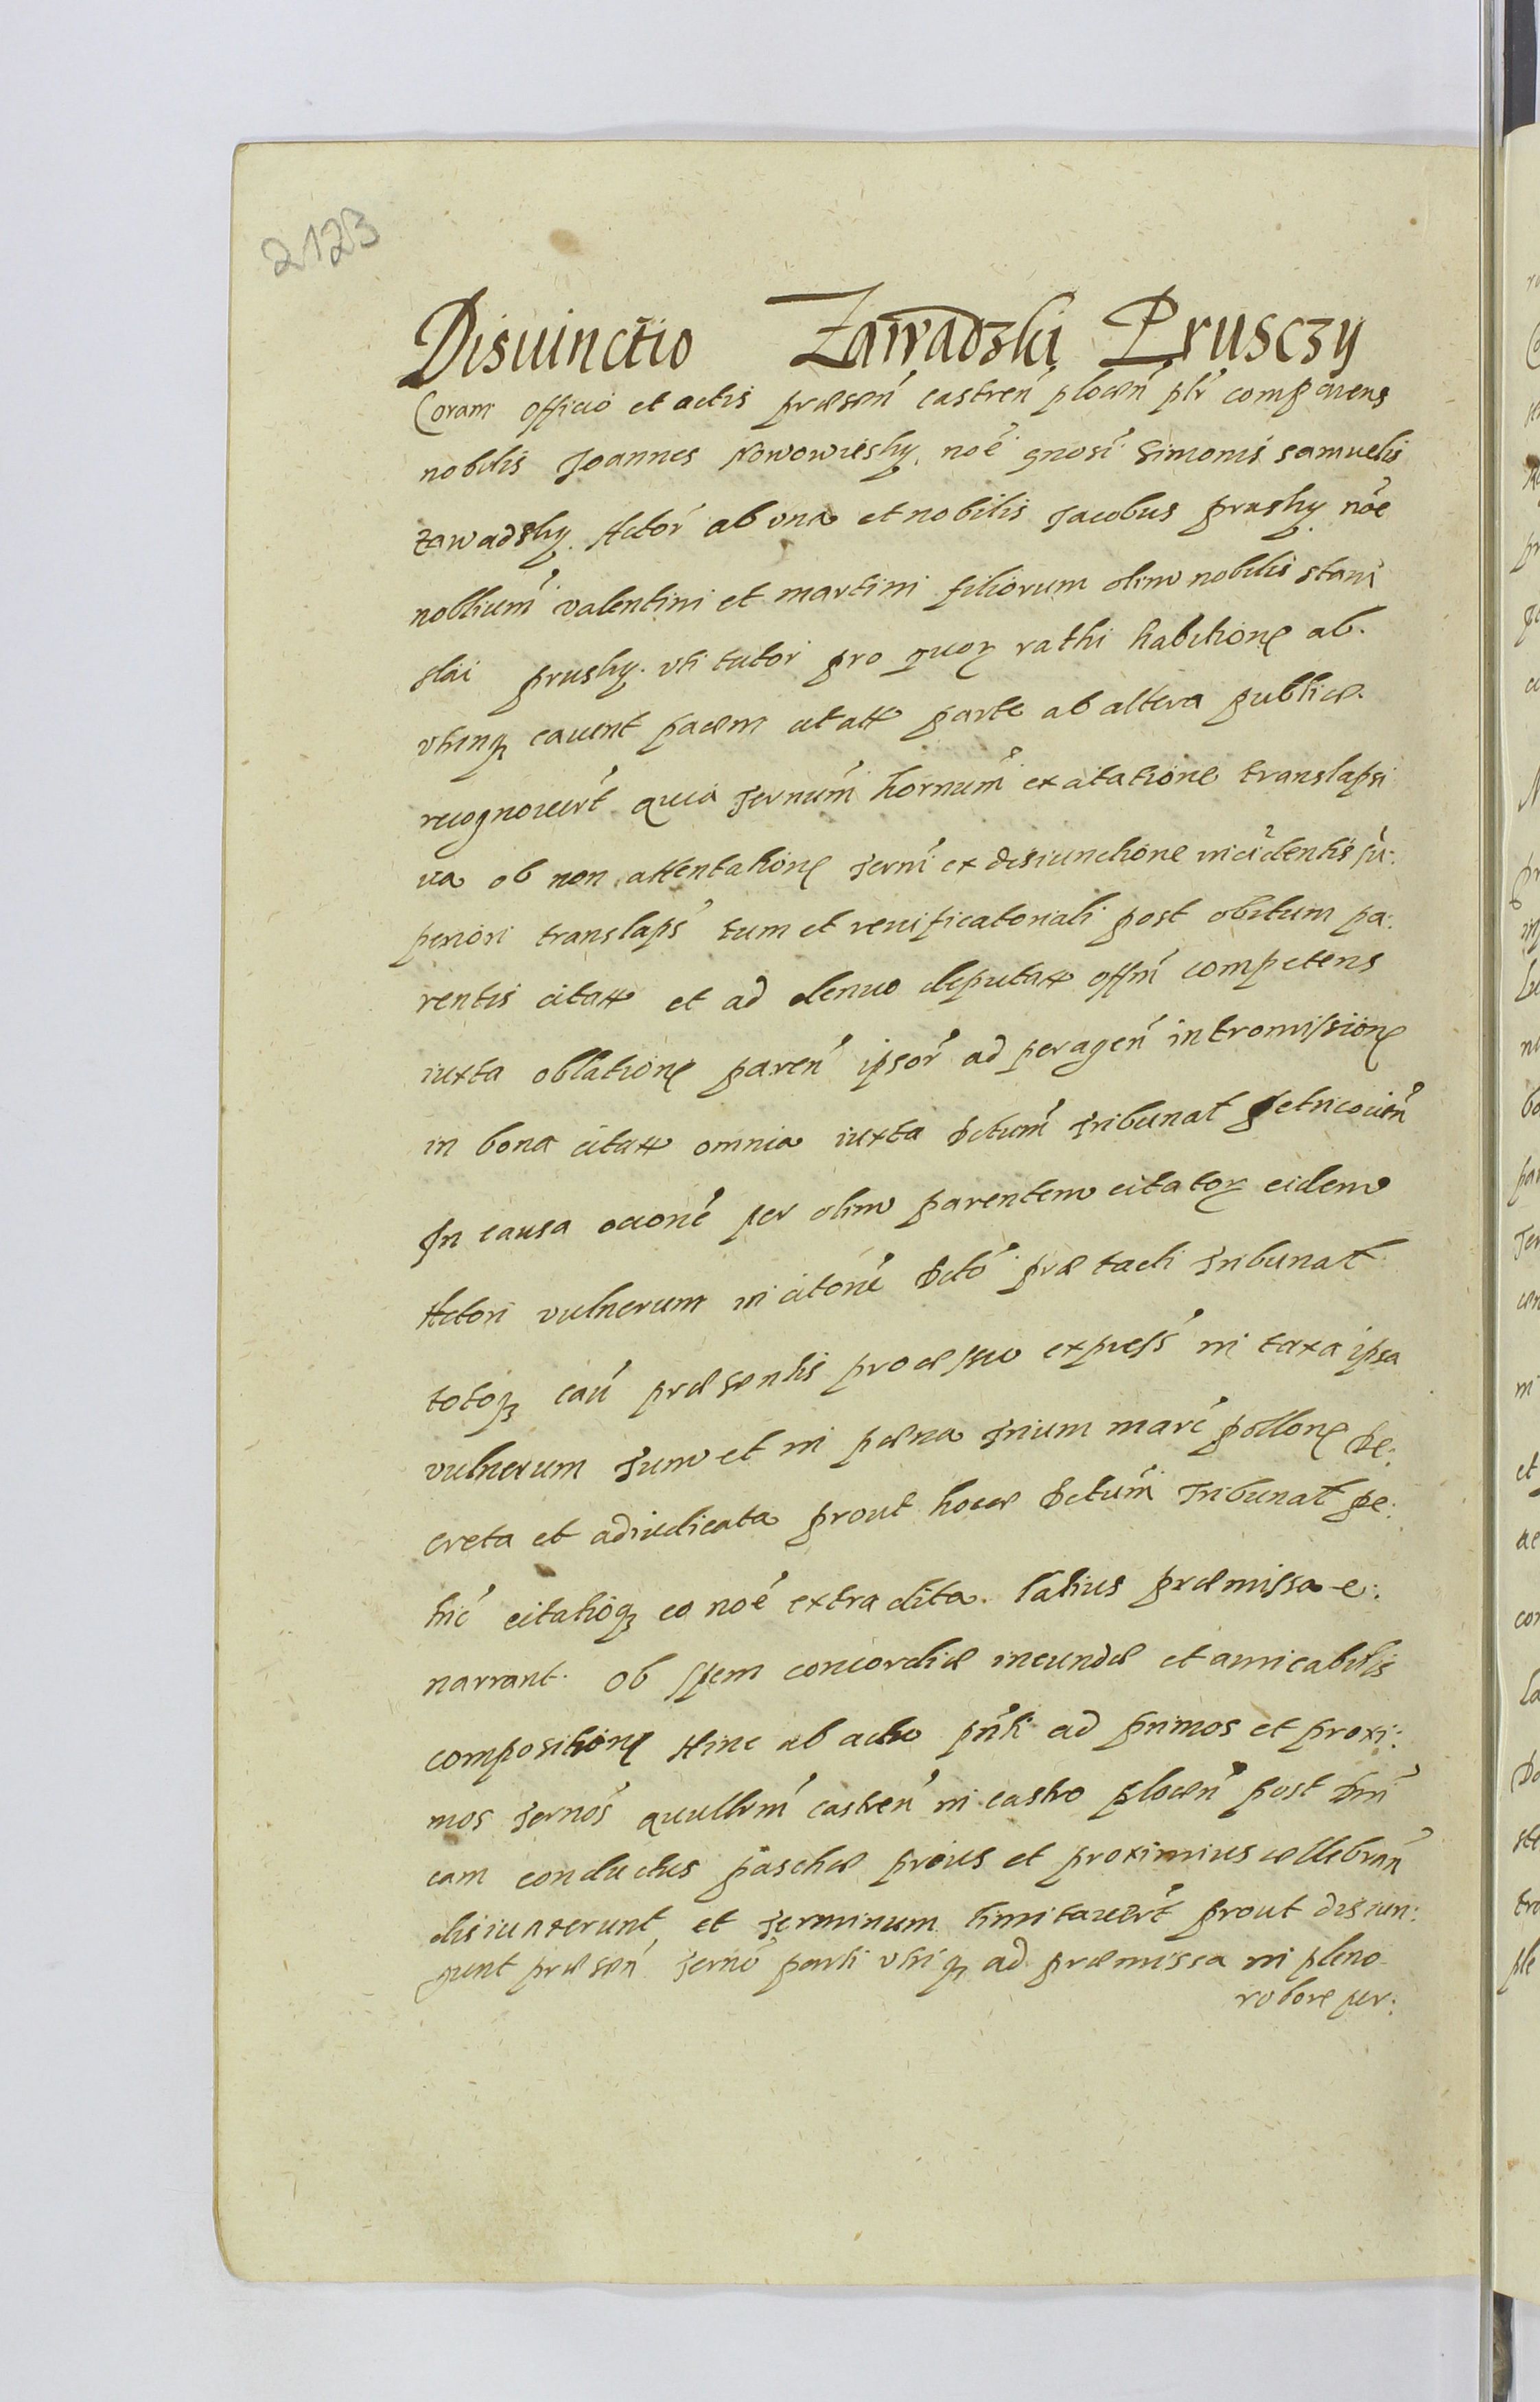 2123
Disiunctio Zawadzki Prusczy
Coram officio et actis præsen̄ castren̄ plocen̄ plr̄ comparens
nobilis Joannes Nowowiesky noē gnosi Simonis Samuelis
Zawadsky Actor̄ ab vna et nobilis Jacobus prusky noē
nobliūm valentini et martini filiorum olim nobilis stani
slai prusky. vti tutor pro quoꝝ rathi habitione ab.
vtrinqꝫ cavent pacem citatæ parte ab altera publicæ.
recognouert̄ quia ternūm hornum̄ ex citatione translapsi
ua ob non attentatione term̄ ex disiunctione incidentis su:
periori translaps̄ tum et reuificatoriali post obitum pa:
rentis citatæ et ad denuo deputatæ offm̄ competens
iuxta oblatione paren̄ ipsor̄ ad peragen̄ intromissione
in bona citatæ omnia iuxta dctum̄ Tribunal petricouien̄
In causa occonē per olim parentem citatoꝝ eidem
Actori vulnerum in citonē dctō præ tacti Tribunal
totoqꝫ caū præsentis processu express̄ in taxa ipsa
vulnerum tum et in pœna trium marc̄ pollone de:
creta et adiudicata prout hocce dctum̄ Tribunal pe:
tric̄ citatioqꝫ eo noē extradita. latius præmissa e:
narrant. Ob spem concordiæ ineundæ et amicabilis
compositione Hinc ab actu pn̄ti ad primos et proxi:
mos ternos̄ quærellrm̄ castren̄ in castro plocen̄ post dni
cam conductus paschæ prius et proximius cellebran̄
disiunxerunt et terminum limitauert̄ prout disiun:
gunt præsen̄ ternō parti vtriqꝫ ad præmissa in pleno
robore per: